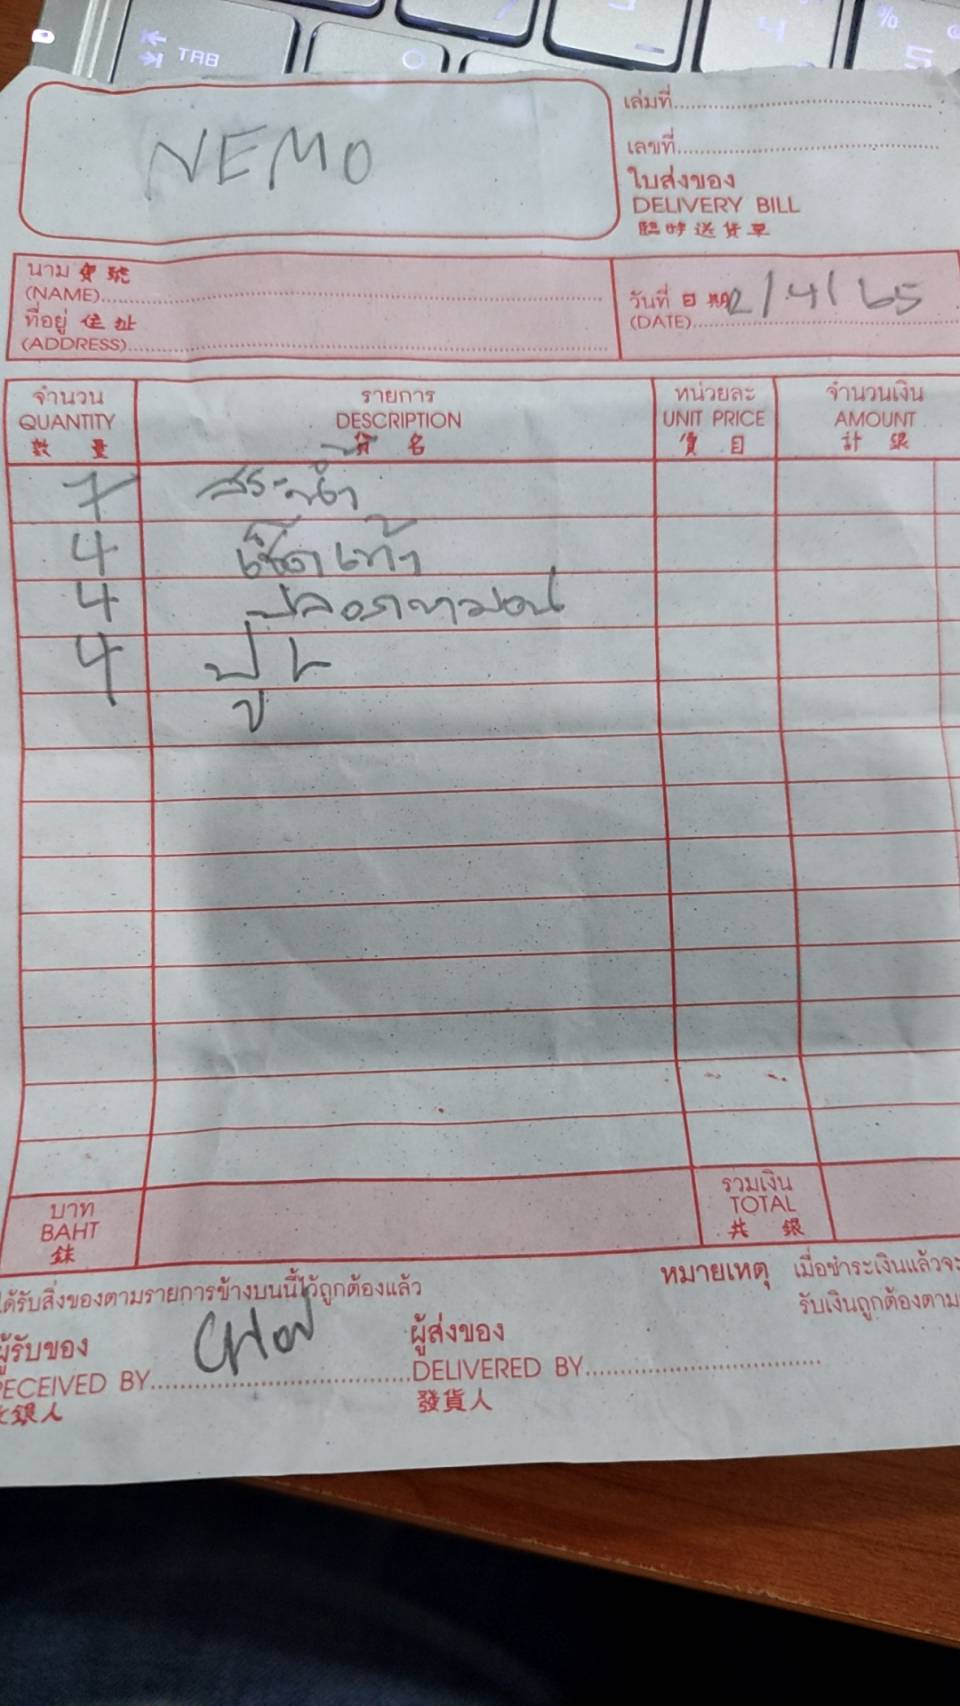 TAB
%
5
4
NEMO
เล่มที่
เลขที่
ใบส่งของ
DELIVERY BILL
臨時送貨單
นาม 寶號
(NAME)
ที่อยู่ 住址
(ADDRESS)
วันที่ 日期 2/4/65
(DATE)
จำนวน รายการ หน่วยละ จำนวนเงิน
QUANTITY DESCRIPTION UNIT PRICE AMOUNT
數量 貨名 價目 計銀
7 สระน้ำ
4 เช็ดเท้า
4 ปลอกหมอน
4 ปู L
บาท
BAHT
銖
รวมเงิน
TOTAL
共銀
ได้รับสิ่งของตามรายการข้างบนนี้ไว้ถูกต้องแล้ว
หมายเหตุ เมื่อชำระเงินแล้วจะ
รับเงินถูกต้องตาม
ผู้รับของ
RECEIVED BY
收銀人
ผู้ส่งของ
DELIVERED BY
發貨人